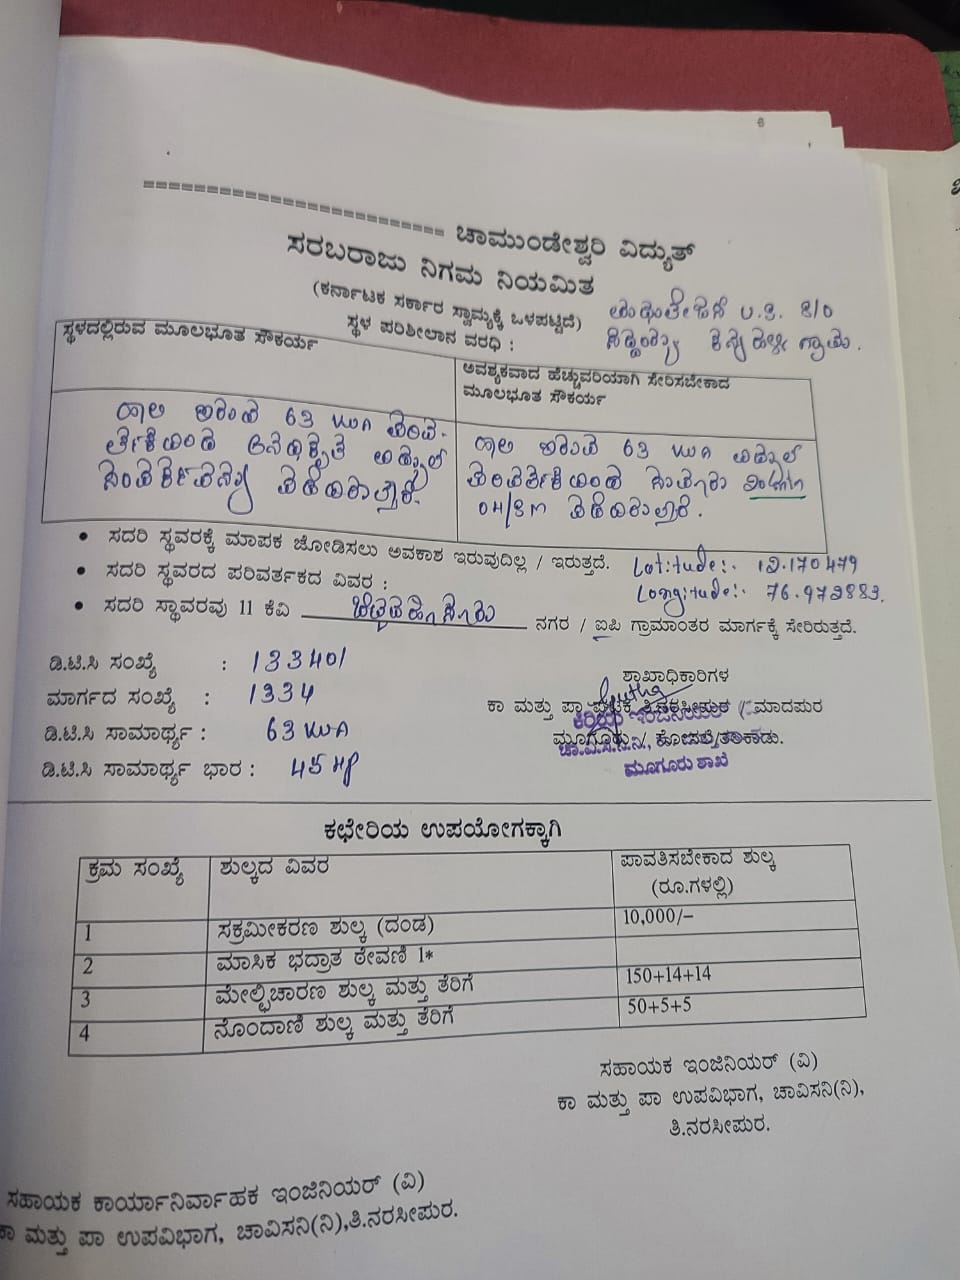 ==========================
ಚಾಮುಂಡೇಶ್ವರಿ ವಿದ್ಯುತ್
ಸರಬರಾಜು ನಿಗಮ ನಿಯಮಿತ
(ಕರ್ನಾಟಕ ಸರ್ಕಾರ ಸ್ವಾಮ್ಯಕ್ಕೆ ಒಳಪಟ್ಟಿದೆ)
ಸ್ಥಳ ಪರಿಶೀಲಾನ ವರಧಿ :
U.S. S/O
ಗ್ರಾಮ.
ಸ್ಥಳದಲ್ಲಿರುವ ಮೂಲಭೂತ ಸೌಕರ್ಯ
ಅವಶ್ಯಕವಾದ ಹೆಚ್ಚುವರಿಯಾಗಿ ಸೇರಿಸಬೇಕಾದ
ಮೂಲಭೂತ ಸೌಕರ್ಯ
ಹಾಲಿ ಇರುವ 63 KVA ಪರಿವ-
ರ್ತಕದಿಂದ ಅನಧಿಕೃತ ವಿದ್ಯುತ್
ಹಾಲಿ ಇರುವ 63 KVA ವಿದ್ಯುತ್
ಪರಿವರ್ತಕದಿಂದ
• ಸದರಿ ಸ್ಥವರಕ್ಕೆ ಮಾಪಕ ಜೋಡಿಸಲು ಅವಕಾಶ ಇರುವುದಿಲ್ಲ / ಇರುತ್ತದೆ.
Latitude:. 12.170479
• ಸದರಿ ಸ್ಥವರದ ಪರಿವರ್ತಕದ ವಿವರ :
Longitude:. 76.972883.
• ಸದರಿ ಸ್ಥಾವರವು 11 ಕೆವಿ ನಗರ / ಐಪಿ ಗ್ರಾಮಾಂತರ ಮಾರ್ಗಕ್ಕೆ ಸೇರಿರುತ್ತದೆ.
ಡಿ.ಟಿ.ಸಿ ಸಂಖ್ಯೆ : 133401
ಮಾರ್ಗದ ಸಂಖ್ಯೆ : 1334
ಡಿ.ಟಿ.ಸಿ ಸಾಮಾರ್ಥ್ಯ : 63 KVA
ಡಿ.ಟಿ.ಸಿ ಸಾಮಾರ್ಥ್ಯ ಭಾರ : 45 HP
ಶಾಖಾಧಿಕಾರಿಗಳ
ಕಾ ಮತ್ತು ಪಾ ಘಟಕ ತಿ.ನರಸೀಪುರ / ಮಾದಪುರ
ಮೂಗೂರು / ಕೋಸಲೆ/ತಲಕಾಡು.
ಮೂಗೂರು ಶಾಖೆ
ಕಛೇರಿಯ ಉಪಯೋಗಕ್ಕಾಗಿ
ಕ್ರಮ ಸಂಖ್ಯೆ ಶುಲ್ಕದ ವಿವರ ಪಾವತಿಸಬೇಕಾದ ಶುಲ್ಕ
(ರೂ.ಗಳಲ್ಲಿ)
1 ಸಕ್ರಮೀಕರಣ ಶುಲ್ಕ (ದಂಡ) 10,000/–
2 ಮಾಸಿಕ ಭದ್ರಾತ ಠೇವಣಿ 1*
3 ಮೇಲ್ವಿಚಾರಣ ಶುಲ್ಕ ಮತ್ತು ತೆರಿಗೆ 150+14+14
4 ನೊಂದಾಣಿ ಶುಲ್ಕ ಮತ್ತು ತೆರಿಗೆ 50+5+5
ಸಹಾಯಕ ಇಂಜಿನಿಯರ್ (ವಿ)
ಕಾ ಮತ್ತು ಪಾ ಉಪವಿಭಾಗ, ಚಾವಿಸನಿ(ನಿ),
ತಿ.ನರಸೀಪುರ.
ಸಹಾಯಕ ಕಾರ್ಯಾನಿರ್ವಾಹಕ ಇಂಜಿನಿಯರ್ (ವಿ)
ಕಾ ಮತ್ತು ಪಾ ಉಪವಿಭಾಗ, ಚಾವಿಸನಿ(ನಿ),ತಿ.ನರಸೀಪುರ.